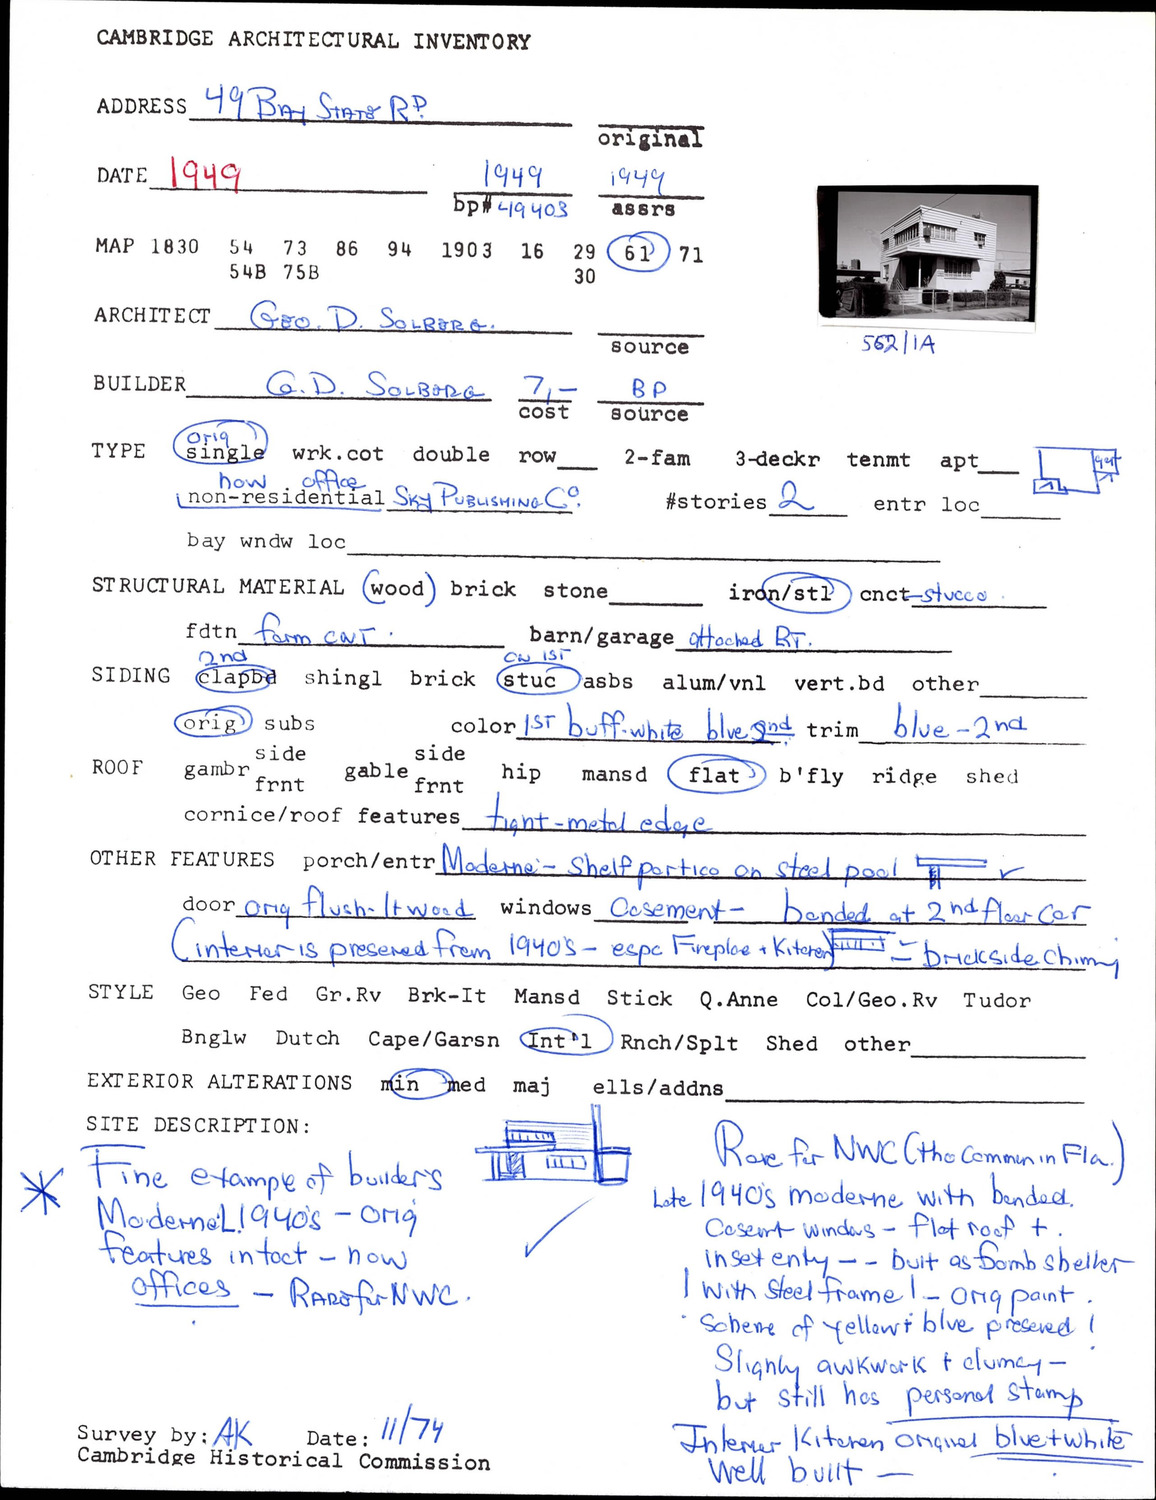 CAMBRIDGE ARCHITECTURAL INVENTORY
ADDRESS 49 Bay State Rd.
original
DATE 1949 1949 1949
bp# 49403 assrs
MAP 1830 54 73 86 94 1903 16 29 61 71
54B 75B 30
ARCHITECT Geo. D. Solberg.
source
562/1A
BUILDER G.D. Solberg 7,- BP
cost source
orig
TYPE single wrk.cot double row 2-fam 3-deckr tenmt apt
now office
non-residential Sky Publishing Co. #stories 2 entr loc
bay wndw loc
STRUCTURAL MATERIAL wood brick stone iron/stl cnct-stucco
fdtn form cnt. barn/garage attached RT.
2nd on 1st
SIDING clapbd shingl brick stuc asbs alum/vnl vert.bd other
orig subs color 1st buff-white blue 2nd trim blue-2nd
side side
ROOF gambr gable hip mansd flat b'fly ridge shed
frnt frnt
cornice/roof features tight-metal edge
OTHER FEATURES porch/entr Moderne - Shelf portico on steel pool
door orig flush-lt wood windows Casement - banded at 2nd floor cor
(interior is preseved from 1940's - espc Fireplae + Kitchen) - brick side chimny
STYLE Geo Fed Gr.Rv Brk-It Mansd Stick Q.Anne Col/Geo.Rv Tudor
Bnglw Dutch Cape/Garsn Int'l Rnch/Splt Shed other
EXTERIOR ALTERATIONS min med maj ells/addns
SITE DESCRIPTION:
Fine example of builder's
Moderne L.1940's - orig
features intact - now
offices - Rare for NWC.
Rare for NWC (tho Common in Fla.)
Late 1940's moderne with banded.
Casemt windows - flat roof +.
inset enty - - built as Bomb shelter
! with Steel frame! - orig paint.
Scheme of yellow + blue preseved!
Slighly awkwark + clumsy -
but still has personal stamp
Interior Kitchen original blue + white
Well built -
Survey by: AK Date: 11/74
Cambridge Historical Commission